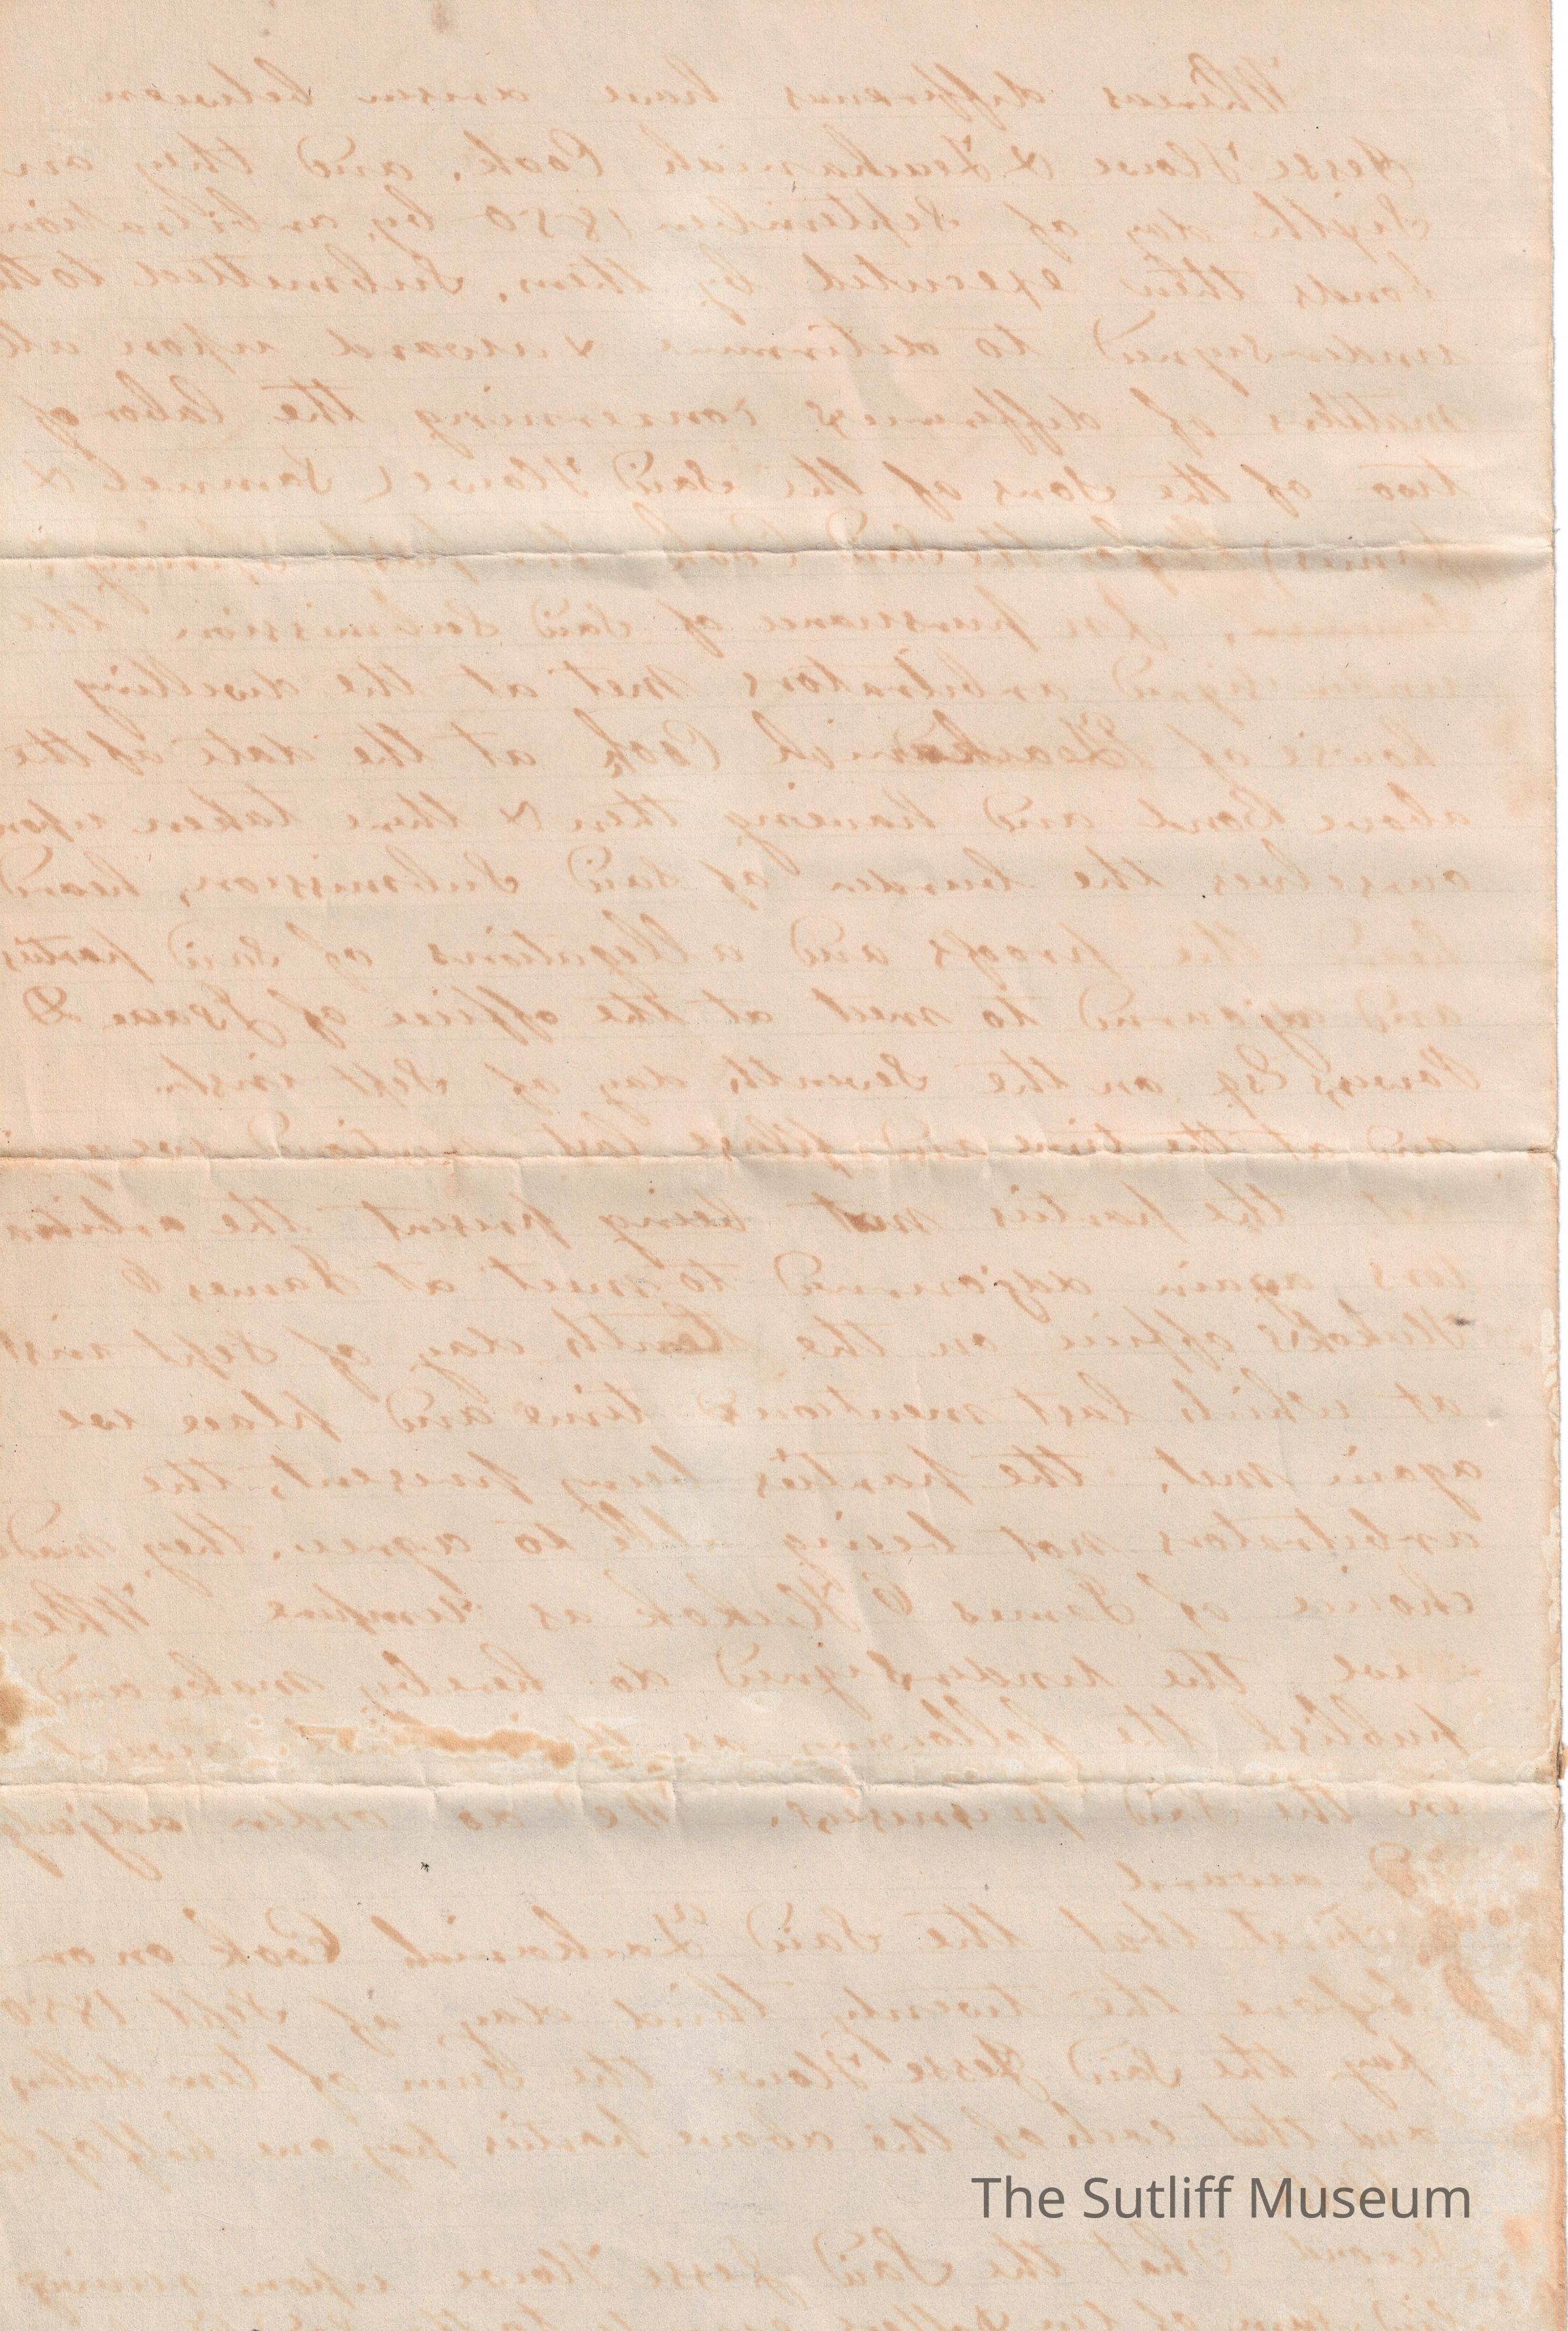 Whereas differences have arisen between
Jesse Howe & Zachariah Cook, and they on
day of September 1850 by arbitration
bonds then executed by them, Submitted to the
undersigned to determine & award upon all
matters of differences concerning the labor of
two of the Sons of the Said Howe (Samuel &
the said Cook the past
In pursuance of Said Submission the
undersigned arbitrators met at the dwelling
house of Zachariah Cook at the date of the
above Bond and haveing then & there taken upon
ourselves the burden of Said Submission, heard
the proofs and allegations of Said parties
and adjourned to meet at the office of Isaac
Powers Esq on the Seventh day of Sept inst.
and at the time and place last mentioned
the parties not being present the arbitra
tors again adjourned to meet at James C
Hickoks office on the tenth day of Sept inst
at which last mentioned time and place we
again met, the parties being present, the
arbitrators not being able to agree, they made
choice of James C Hickok as umpire When
we the undersigned do hereby make and
publish the following as award
in the Said premises. We do order adjudge
award
First that the Said Zachariah Cook on or
before the twenty third day of Sept 1850
pay the Said Jesse Howe the Sum of ten dollars
and that each of the above parties pay one half of
Second That the Said Jesse Howe upon
The Sutliff Museum